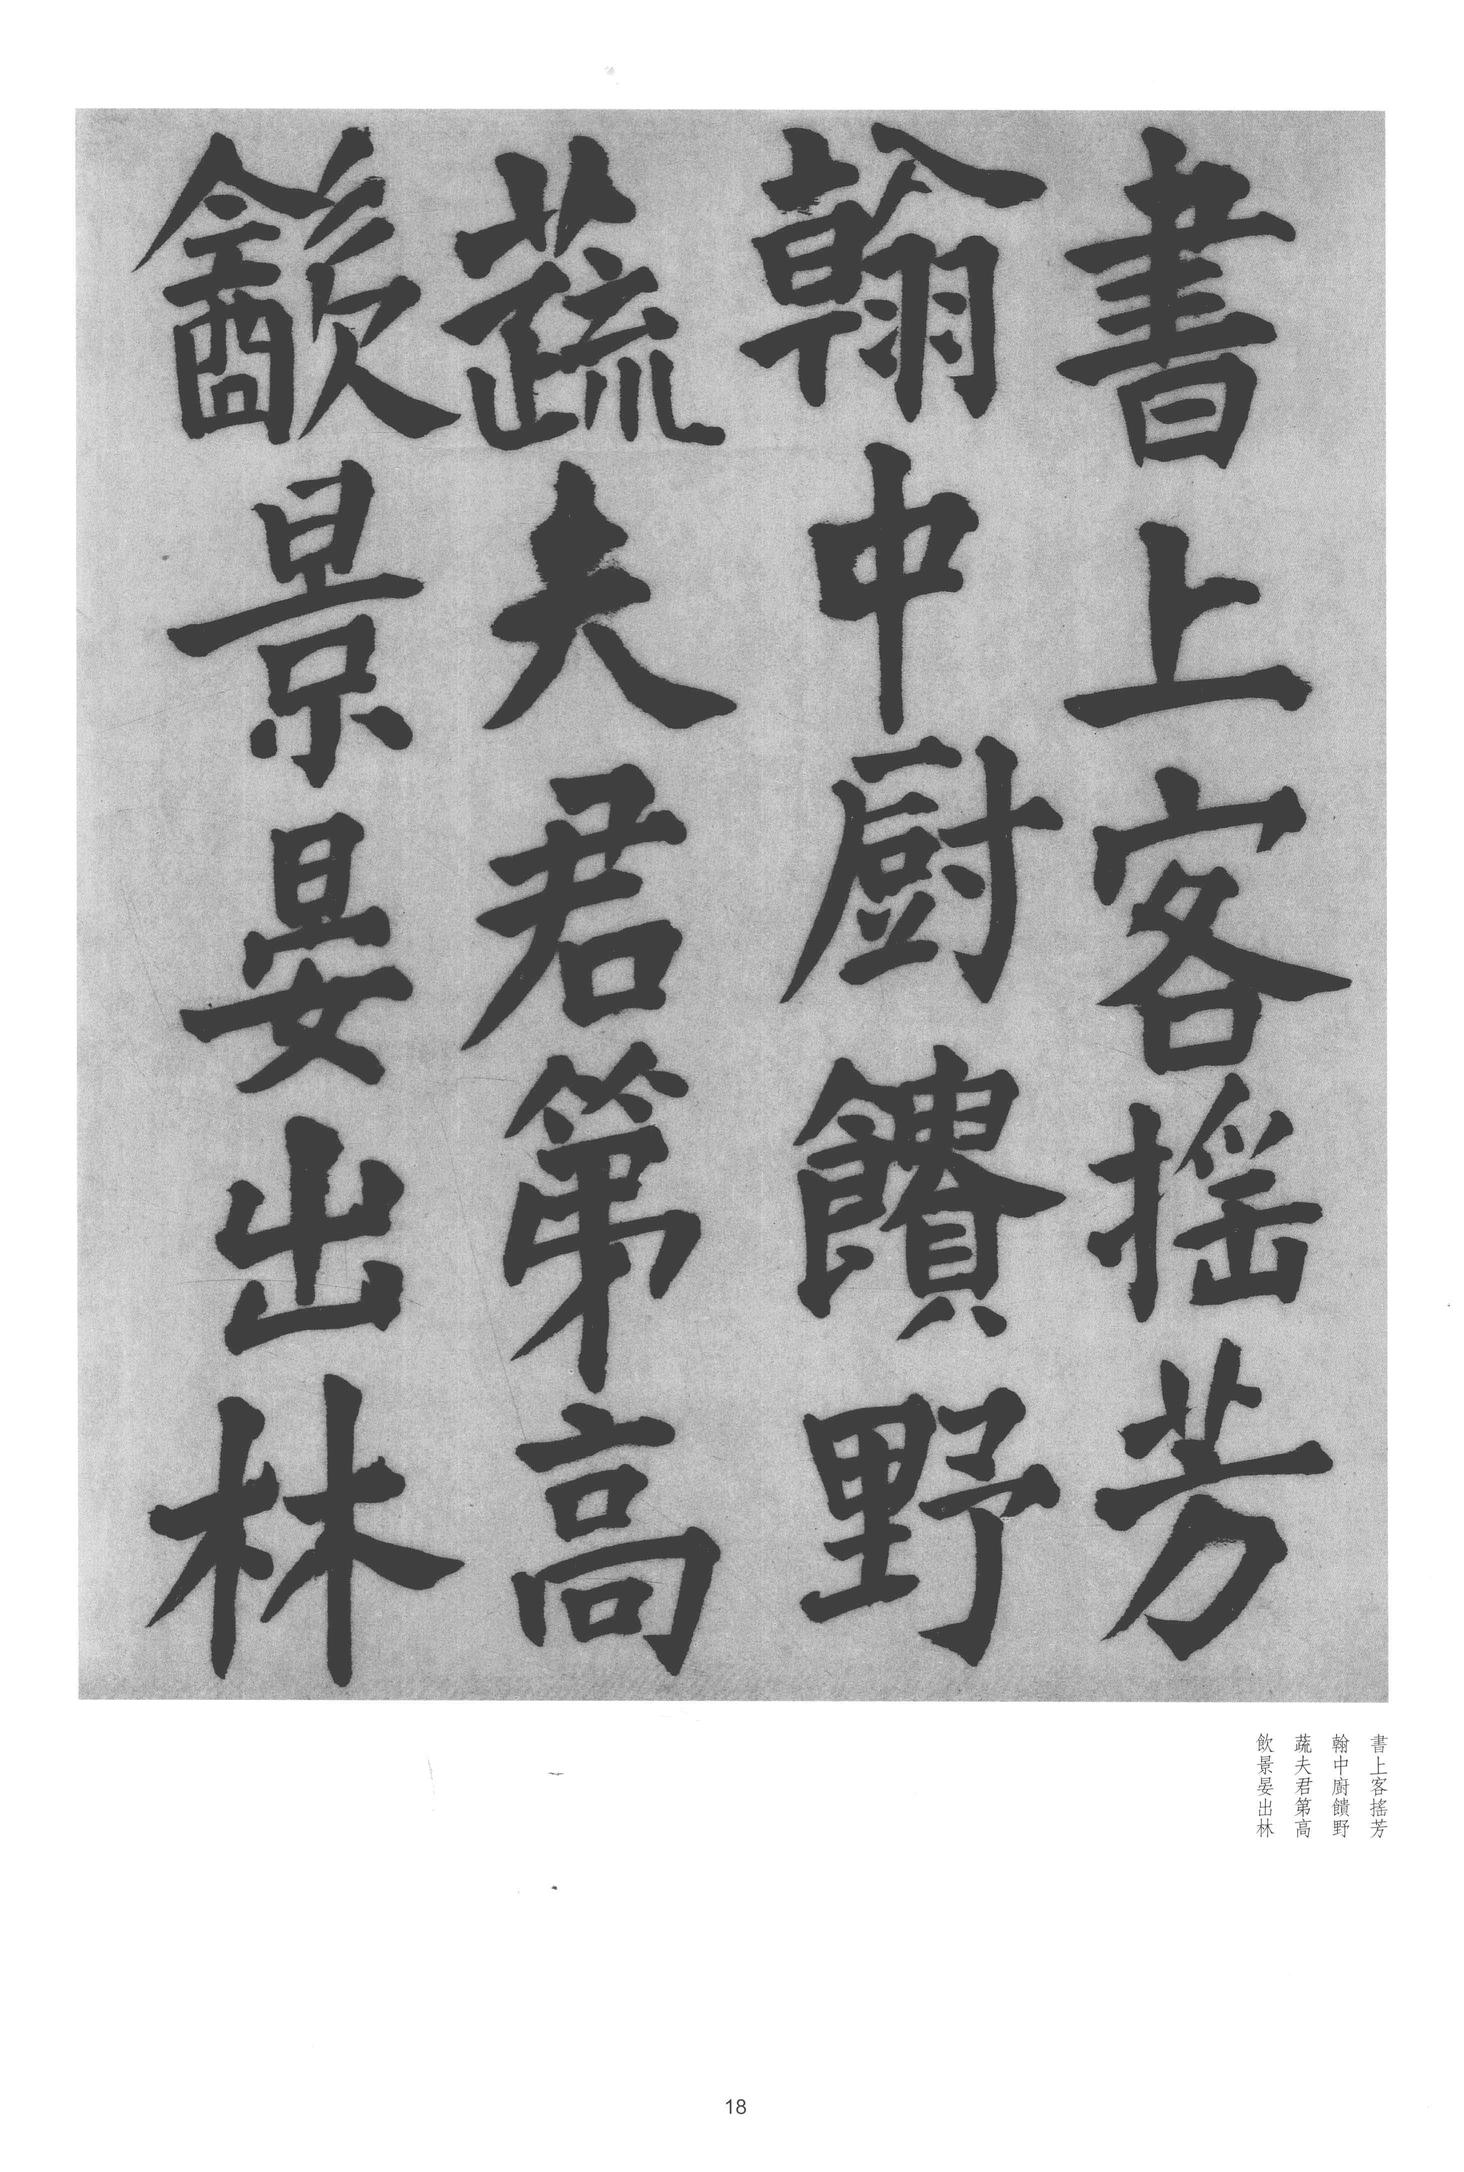 書上客摇芳
翰中厨饋野
蔬夫君第高
歓景晏出林
書上客搖芳
翰中廚饋野
蔬夫君第高
飲景晏出林
18